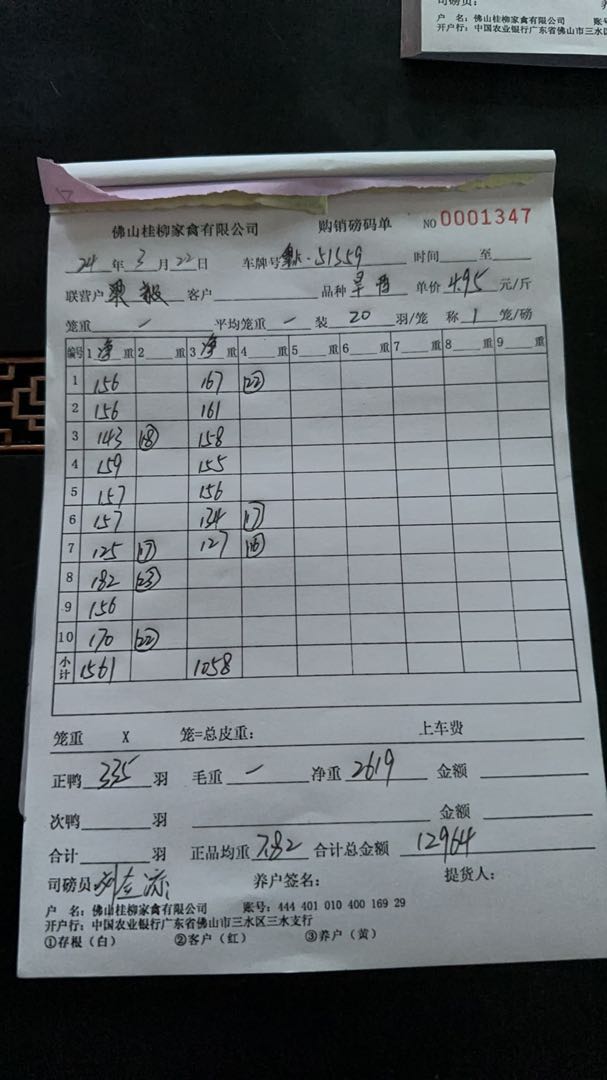 司磅员：
户 名：佛山桂柳家禽有限公司 账号
开户行：中国农业银行广东省佛山市三水区
佛山桂柳家禽有限公司 购销磅码单 NO 0001347
24 年 3 月 22 日 车牌号 51559 时间 至
联营户 客户 品种 单价 4.95 元/斤
笼重 — 平均笼重 — 装 20 羽/笼 称 1 笼/磅
编号 1 净 重 2 重 3 净 重 4 重 5 重 6 重 7 重 8 重 9 重
1 156 167 22
2 156 161
3 143 18 158
4 159 155
5 157 156
6 157 134 17
7 125 17 127 16
8 182 23
9 156
10 170 22
小计 1561 1058
笼重 X 笼=总皮重： 上车费
正鸭 335 羽 毛重 — 净重 2619 金额
次鸭 羽 金额
合计 羽 正品均重 7.82 合计总金额 12964
司磅员 养户签名： 提货人：
户 名：佛山桂柳家禽有限公司 账号：444 401 010 400 169 29
开户行：中国农业银行广东省佛山市三水区三水支行
①存根（白） ②客户（红） ③养户（黄）